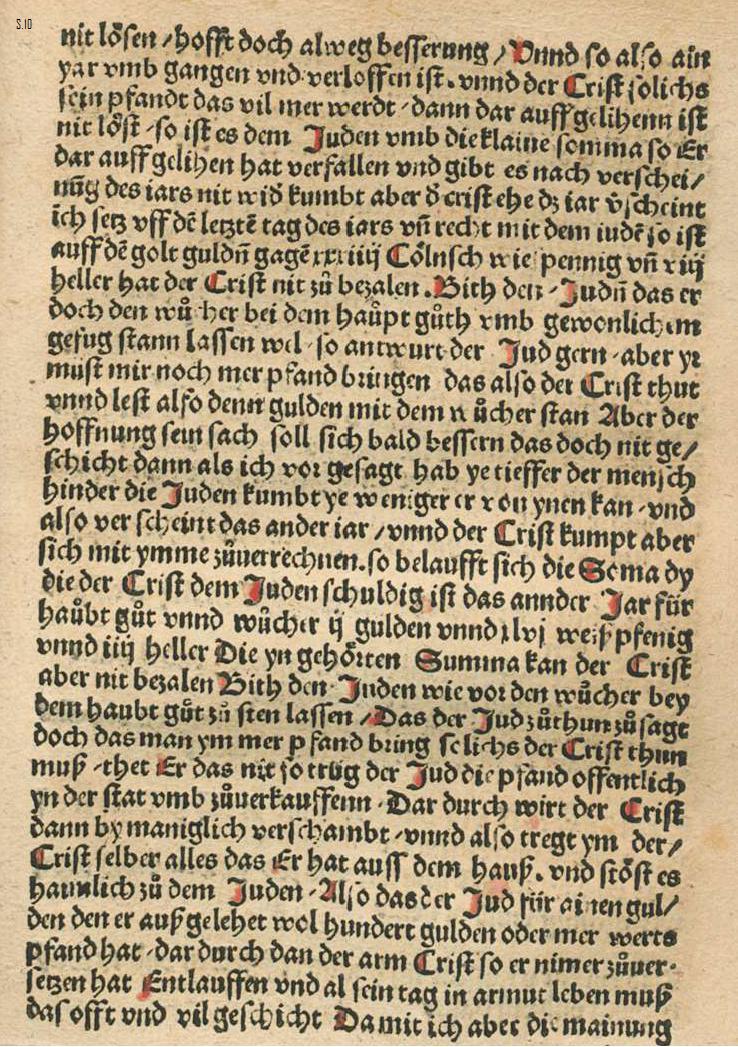 S.10
nit lösen / hofft doch alweg besserung / Vnnd so also ain
yar vmb gangen vnd verloffen ist. vnnd der Crist solichs
sein pfandt das vil mer werdt / dann dar auff gelihenn ist
nit löst / so ist es dem Juden vmb die klaine somma so Er
dar auff gelihen hat verfallen vnd gibt es nach verschei/
nūg des iars nit wid̕ kumbt aber d̕ crist ehe dz iar v̕scheint
ich setz vff dē letztē tag des iars vn̄ recht mit dem iudē so ist
auff dē golt guldn̄ gagē xxiiij Cölnsch wie pennig vn̄ viij
heller hat der Crist nit zů bezalen. Bith den Judn̄ das er
doch den wůcher bei dem haůpt gůth vmb gewonlichem
gefug stann lassen wel / so antwurt der Jud gern / aber yr
must mir noch mer pfand bringen das also der Crist thut
vnnd lest also denn gulden mit dem wůcher stan Aber der
hoffnung sein sach soll sich bald bessern das doch nit ge/
schicht dann als ich vor gesagt hab ye tieffer der mensch
hinder die Juden kumbt ye weniger er von ynen kan / vnd
also ver scheint das ander iar / vnnd der Crist kumpt aber
sich mit ymme zůuerrechnen. so belaufft sich die Soma dy
die der Crist dem Juden schuldig ist das annder Jar für
haůbt gůt vnnd wůcher ij gulden vnnd xlvj weiß pfenig
vnnd iiij heller Die yn gehörten Summa kan der Crist
aber nit bezalen Bith den Juden wie vor den wůcher bey
dem haubt gůt zů sten lassen / Das der Jud zůthun zůsagt
doch das man ym mer pfand bring solichs der Crist thun
muß / thet Er das nit so trüg der Jud die pfand offentlich
yn der stat vmb zůuerkauffenn / Dar durch wirt der Crist
dann by maniglich verschambt / vnnd also tregt ym der/
Crist selber alles das Er hat auss dem hauß. vnd stöst es
haimlich zů dem Juden / Also das der Jud für ainen gul/
den den er auß gelehet wol hundert gulden oder mer werts
pfand hat / dar durch dan der arm Crist so er nimer zůuer
setzen hat Entlauffen vnd al sein tag in armut leben muß
das offt vnd vil geschicht Damit ich aber die mainung